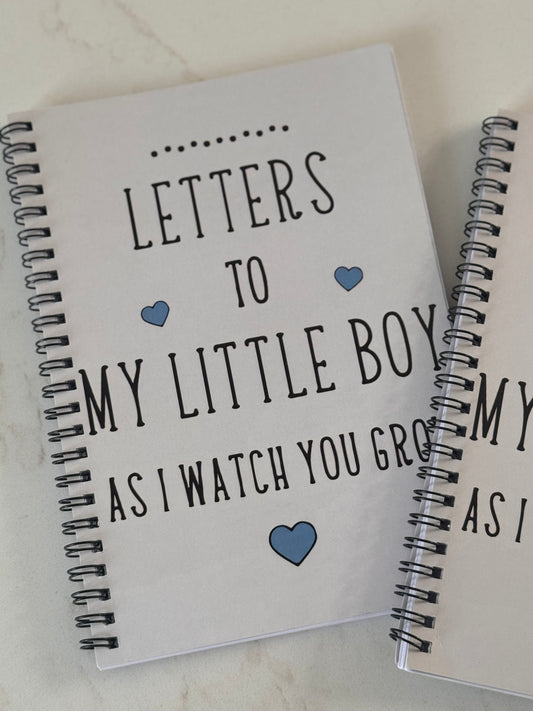 LETTERS
TO
MY LITTLE BOY
AS I WATCH YOU GRO
MY
AS I